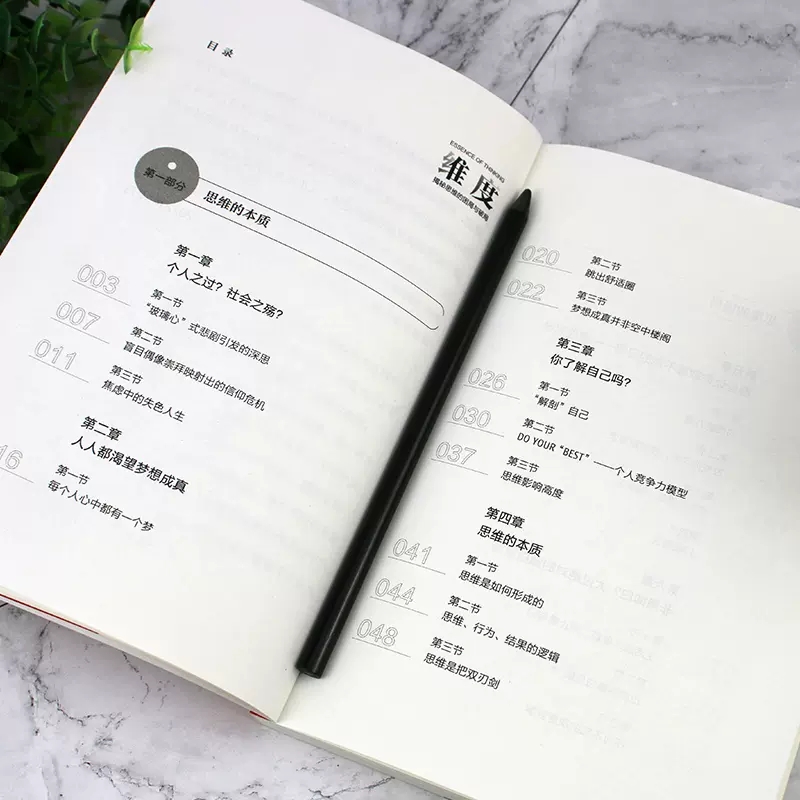 目录
ESSENCE OF THINKING
维度
揭秘思维的困局与破局
第一部分
思维的本质
第一章
个人之过？社会之殇？
003
第一节
“玻璃心”式悲剧引发的深思
007
第二节
盲目偶像崇拜映射出的信仰危机
011
第三节
焦虑中的失色人生
第二章
人人都渴望梦想成真
16
第一节
每个人心中都有一个梦
020
第二节
跳出舒适圈
022
第三节
梦想成真并非空中楼阁
第三章
你了解自己吗？
026
第一节
“解剖”自己
030
第二节
DO YOUR “BEST”——个人竞争力模型
037
第三节
思维影响高度
第四章
思维的本质
041
第一节
思维是如何形成的
044
第二节
思维、行为、结果的逻辑
048
第三节
思维是把双刃剑